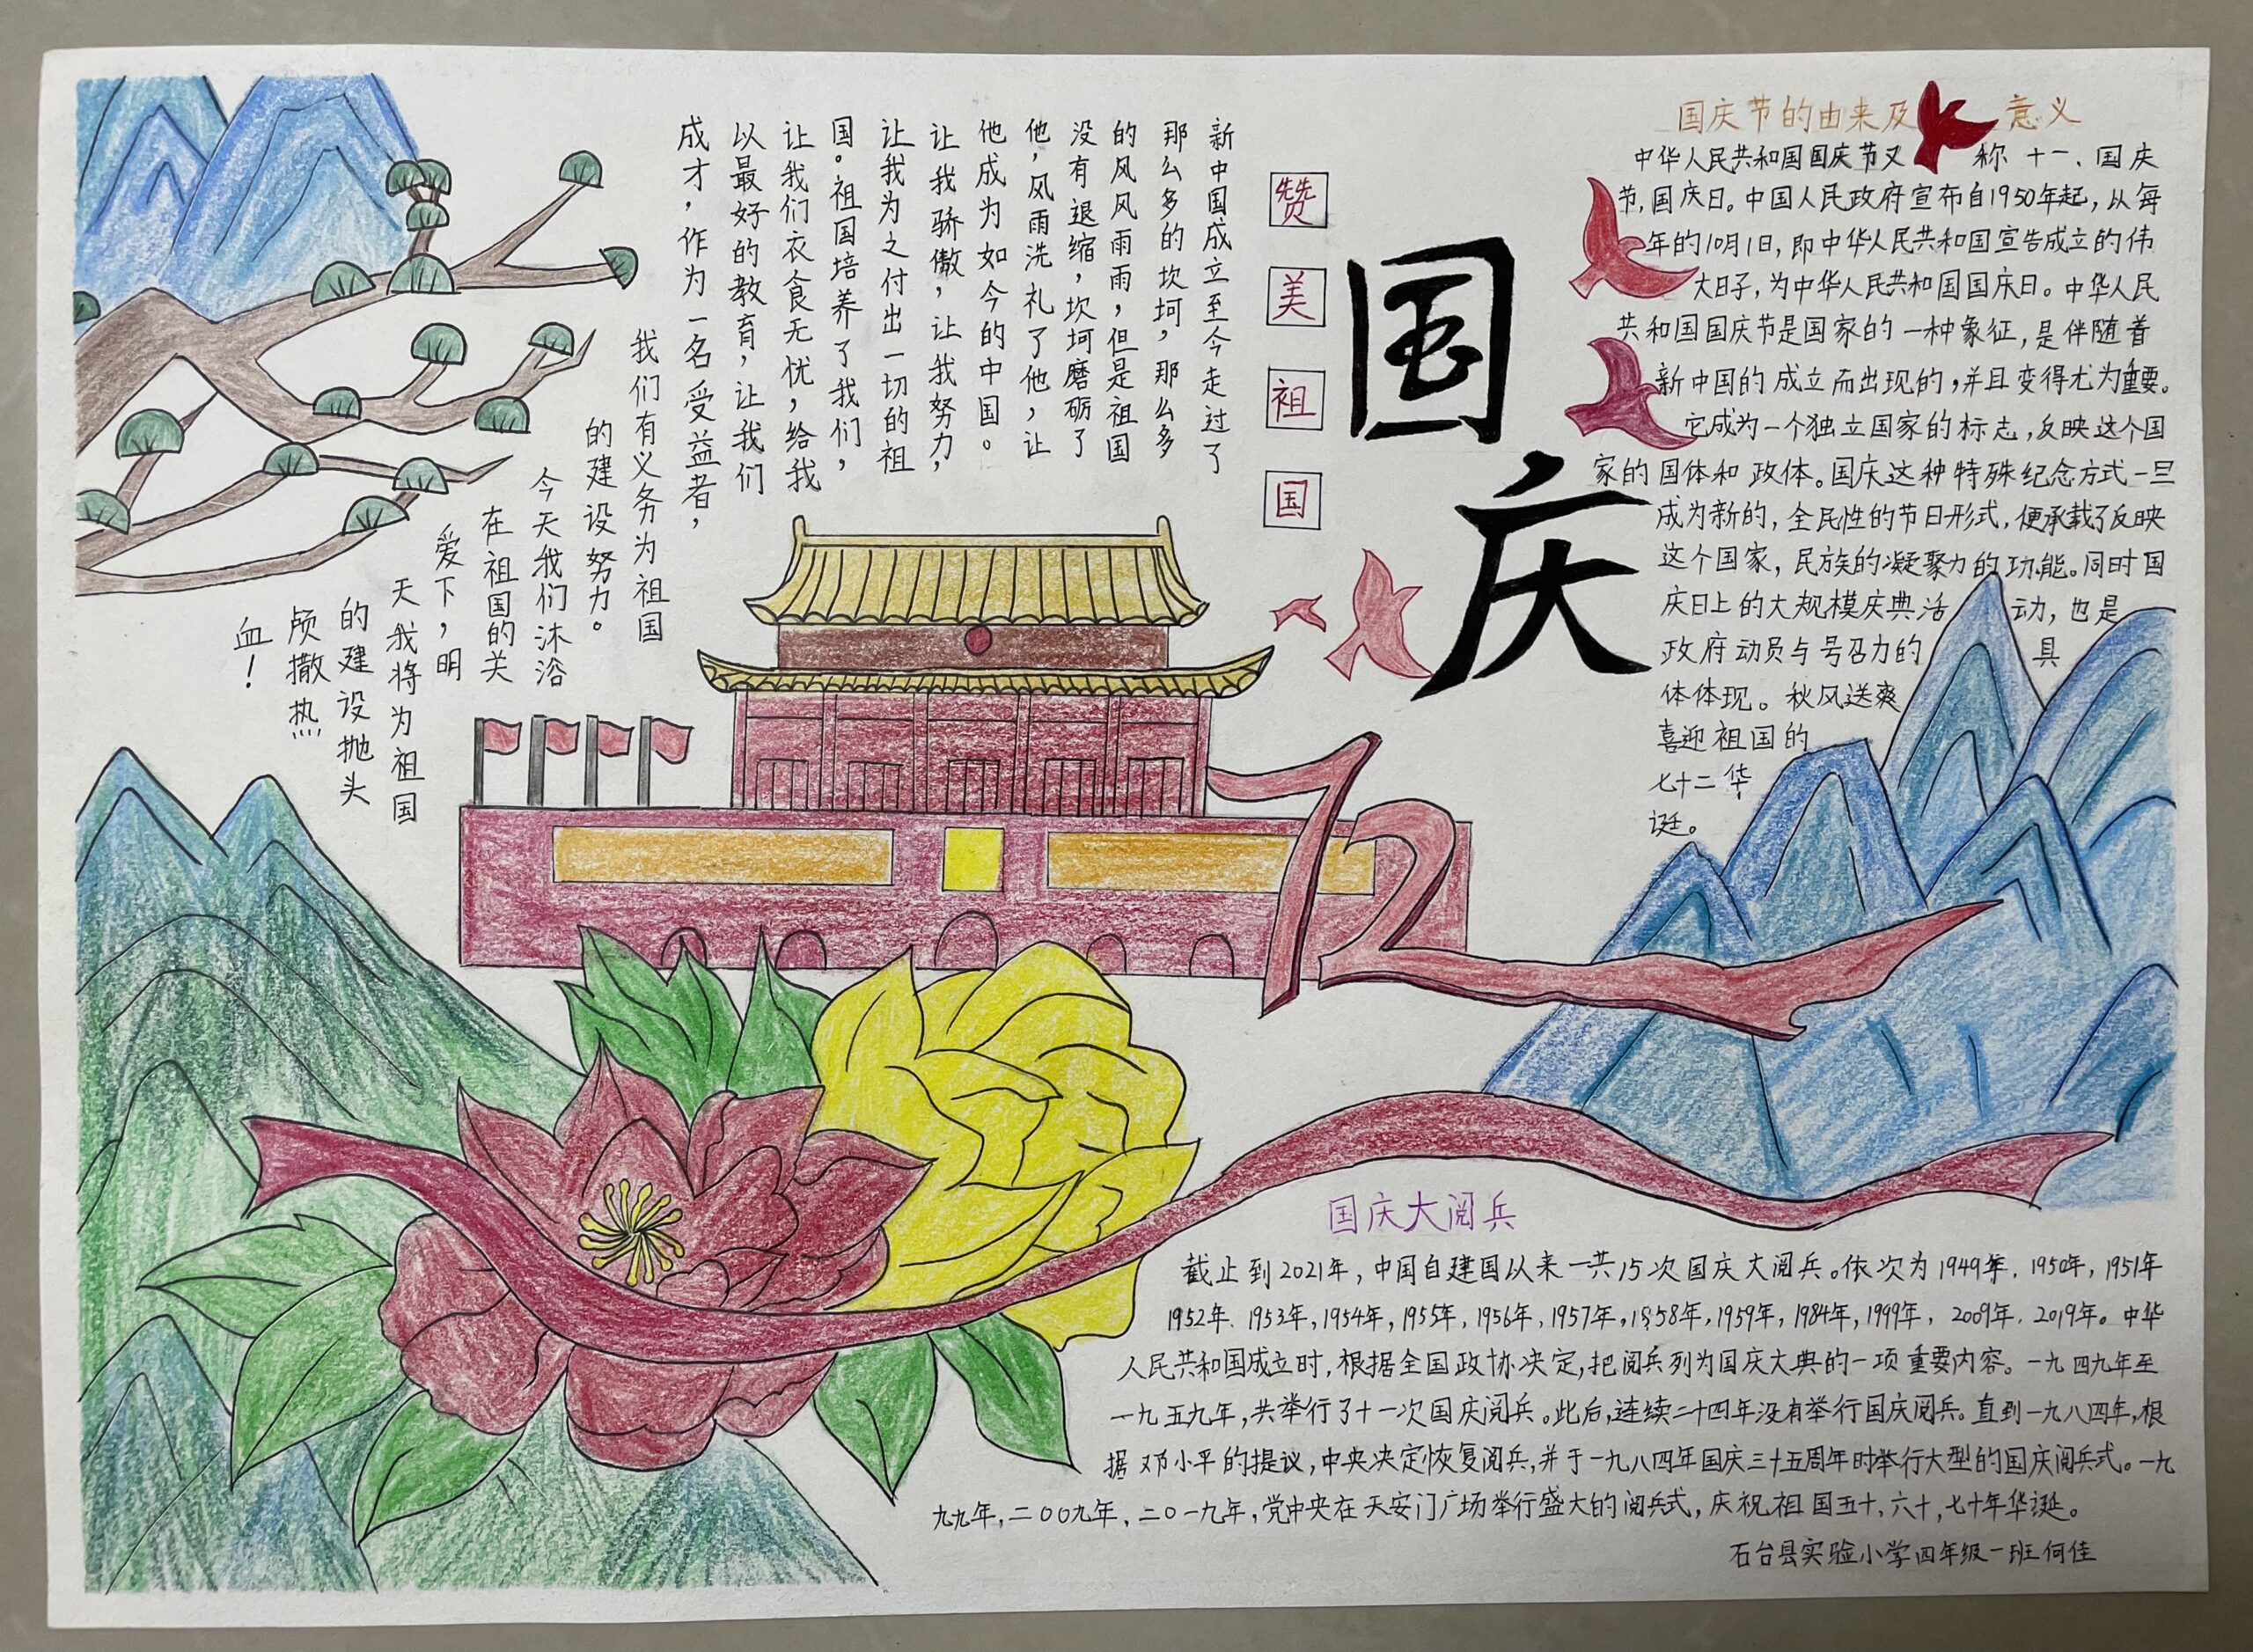 国庆
赞美祖国
新中国成立至今走过了
那么多的坎坷，那么多
的风风雨雨，但是祖国
没有退缩，坎坷磨砺了
他，风雨洗礼了他，让
他成为如今的中国。
让我骄傲，让我努力，
让我为之付出一切的祖
国。祖国培养了我们，
让我们衣食无忧，给我
以最好的教育，让我们
成才，作为一名受益者，
我们有义务为祖国
的建设努力。
今天我们沐浴
在祖国的关
爱下，明
天我将为祖国
的建设抛头
颅撒热
血！
72
国庆节的由来及意义
中华人民共和国国庆节又称十一、国庆
节，国庆日。中国人民政府宣布自1950年起，从每
年的10月1日，即中华人民共和国宣告成立的伟
大日子，为中华人民共和国国庆日。中华人民
共和国国庆节是国家的一种象征，是伴随着
新中国的成立而出现的，并且变得尤为重要。
它成为一个独立国家的标志，反映这个国
家的国体和政体。国庆这种特殊纪念方式一旦
成为新的，全民性的节日形式，便承载了反映
这个国家，民族的凝聚力的功能。同时国
庆日上的大规模庆典活动，也是
政府动员与号召力的具
体体现。秋风送爽
喜迎祖国的
七十二华
诞。
国庆大阅兵
截止到2021年，中国自建国以来一共15次国庆大阅兵。依次为1949年，1950年，1951年
1952年、1953年，1954年，1955年，1956年，1957年，1958年，1959年，1984年，1999年，2009年，2019年。中华
人民共和国成立时，根据全国政协决定，把阅兵列为国庆大典的一项重要内容。一九四九年至
一九五九年，共举行了十一次国庆阅兵。此后，连续二十四年没有举行国庆阅兵。直到一九八四年，根
据邓小平的提议，中央决定恢复阅兵，并于一九八四年国庆三十五周年时举行大型的国庆阅兵式。一九
九九年，二00九年，二0一九年，党中央在天安门广场举行盛大的阅兵式，庆祝祖国五十，六十，七十年华诞。
石台县实验小学四年级一班何佳